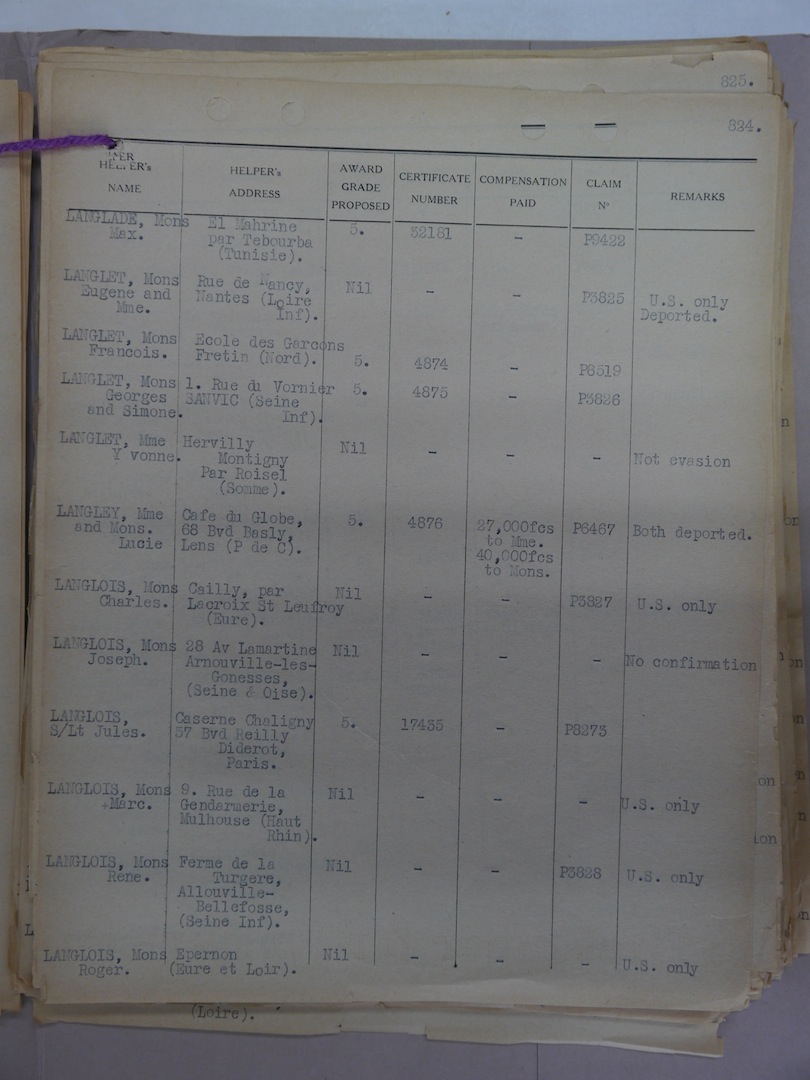 825.
824.
HELPER's NAME | HELPER's ADDRESS | AWARD GRADE PROPOSED | CERTIFICATE NUMBER | COMPENSATION PAID | CLAIM Nº | REMARKS
LANGLADE, Mons El Mahrine 5. 32181 - P9422
Max. par Tebourba
(Tunisie).
LANGLET, Mons Rue de Nancy, Nil - - P3825 U.S. only
Eugene and Nantes (Loire Deported.
Mme. Inf).
LANGLET, Mons Ecole des Garcons
Francois. Fretin (Nord). 5. 4874 - P6519
LANGLET, Mons 1. Rue du Vornier 5. 4875 - P3826
Georges SANVIC (Seine
and Simone. Inf).
LANGLET, Mme Hervilly Nil - - - Not evasion
Yvonne. Montigny
Par Roisel
(Somme).
LANGLEY, Mme Cafe du Globe, 5. 4876 27,000fcs P6467 Both deported.
and Mons. 68 Bvd Basly, to Mme.
Lucie Lens (P de C). 40,000fcs
to Mons.
LANGLOIS, Mons Cailly, par Nil - - P3827 U.S. only
Charles. Lacroix St Leufroy
(Eure).
LANGLOIS, Mons 28 Av Lamartine Nil - - - No confirmation
Joseph. Arnouville-les-
Gonesses,
(Seine & Oise).
LANGLOIS, Caserne Chaligny 5. 17435 - P8273
S/Lt Jules. 57 Bvd Reilly
Diderot,
Paris.
LANGLOIS, Mons 9. Rue de la Nil - - - U.S. only
Marc. Gendarmerie,
Mulhouse (Haut
Rhin).
LANGLOIS, Mons Ferme de la Nil - - P3828 U.S. only
Rene. Turgere,
Allouville-
Bellefosse,
(Seine Inf).
LANGLOIS, Mons Epernon Nil - - - U.S. only
Roger. (Eure et Loir).
(Loire).